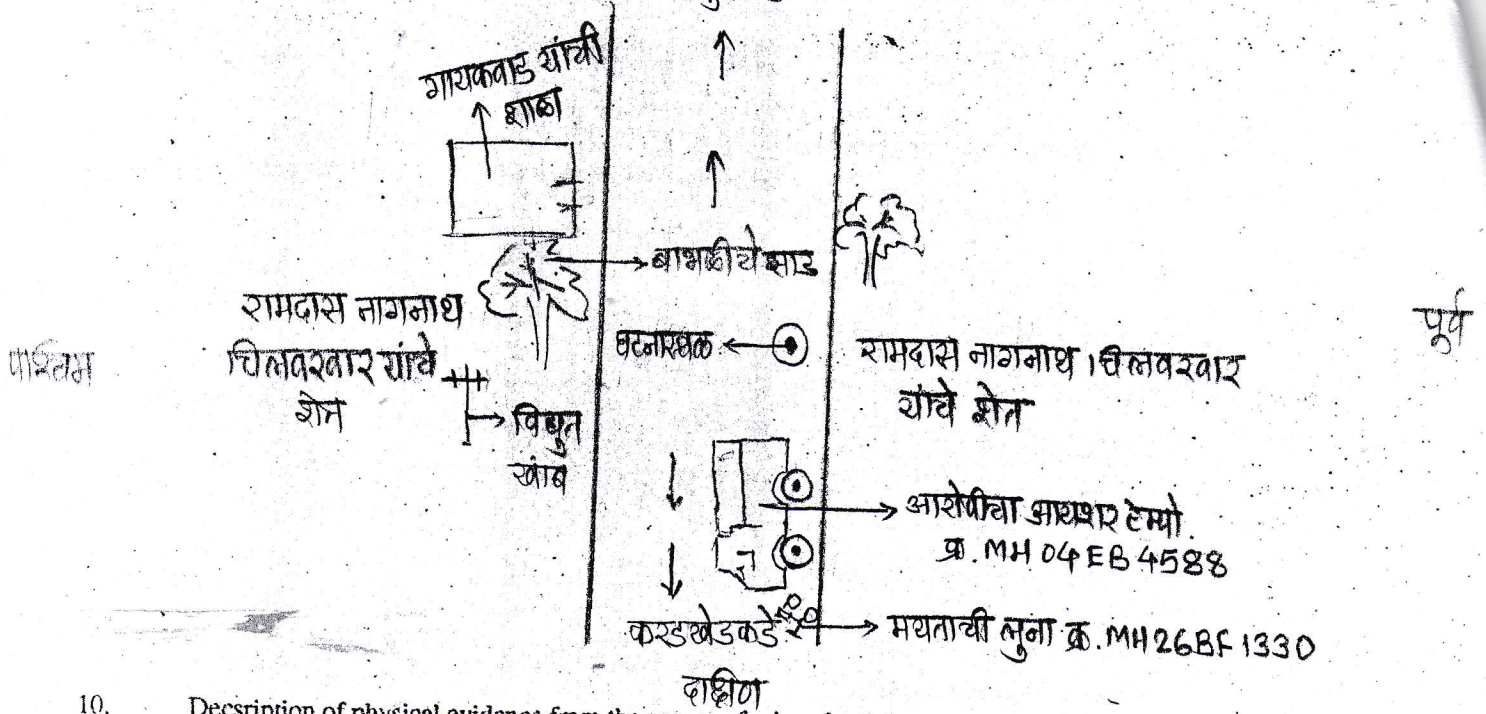 गायकवाड यांची
शाळा
बाभळीचे झाड
रामदास नागनाथ
चिलवरवार यांचे
शेत
पश्चिम
घटनास्थळ
रामदास नागनाथ चिलवरवार
यांचे शेत
पूर्व
विद्युत
खांब
आरोपीचा आयशर टेम्पो.
क्र. MH 04 EB 4588
करडखेडकडे
मयताची लुना क्र. MH26BF 1330
दक्षिण
10. Decsription of physical evidence from the